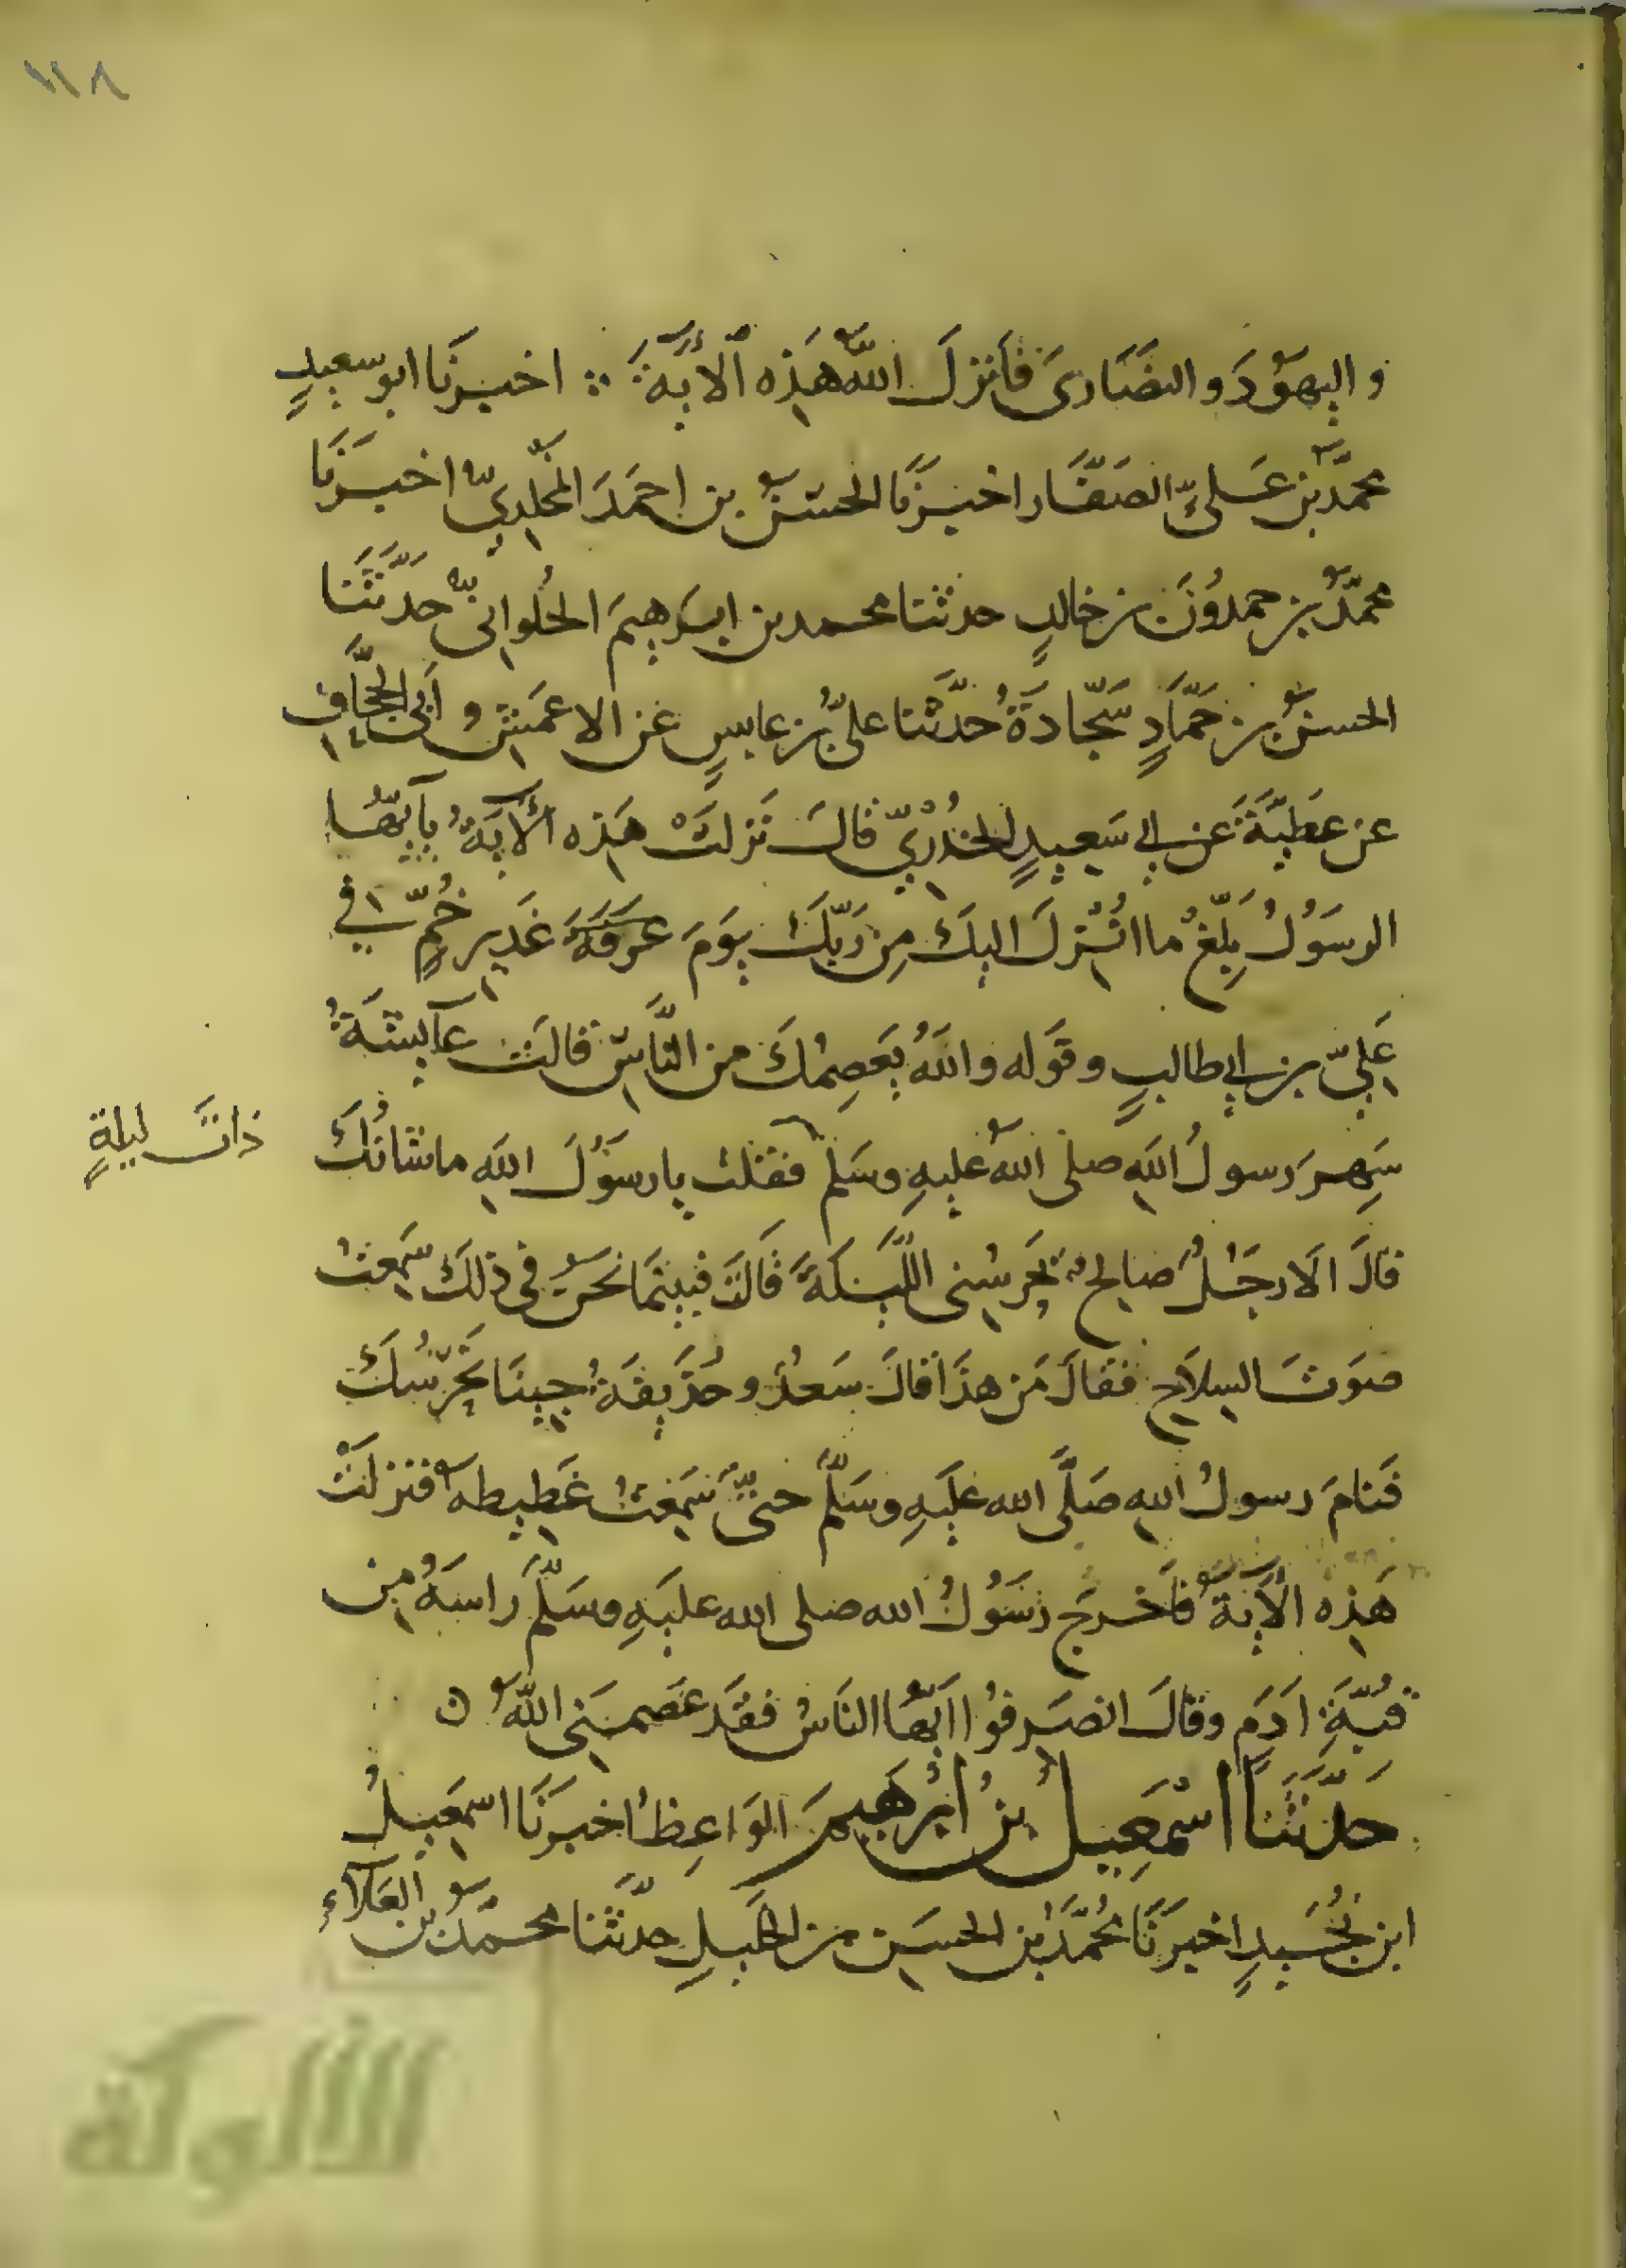 ١١٨
واليهودَ والنصَارىَ فأنزلَ اللهُ هَذه الآيةَ ∴ اخبرنَا ابو سعيدٍ
محمّد بن عَلىّ الصَفّار اخبرنَا الحسَنُ بن احمَدَ المخلدِيّ اخبَرنَا
محمّدُ بن حمدوُنَ بن خالدٍ حدثنا محمد بن ابرَهيمَ الحُلوانىّ حدّثَنا
الحسنُ بن حَمّادٍ سَجّادَةُ حَدّثنا علىّ بن عابسٍ عن الاعمَشِ وَ أبى الجحَّافِ
عن عَطيّةَ عن ابي سَعيدٍ الخدْريّ قالَ نَزلَتْ هَذه الآيَةُ يآيّها
الرسَوُلُ بَلّغْ ما انُزلَ اليكَ مِن رَبّكَ يوَمَ عرفَهَ غَديرِ خُمٍّ في
عَلِيّ بن ابي طالبٍ وقوَله واللهُ يَعصِمُكَ من النَّاسِ قالَت عآيشَةُ
سَهِرَ رسولُ اللهِ صلى اللهُ عليهِ وسَلم فقلت يا رسَوُلَ اللهِ ما شانُكَ
ذاتَ ليلةٍ
قالَ ألا رجَلُ صالحٌ يَحرسُنى اللّيْلَةَ قَالَت فبينمَا نحنُ فى ذلكَ سَمِعتُ
صَوَتَ السِلاَحِ فقالَ مَن هذَا قالَ سَعدُ وحُذَيفَةُ جِينَا نَحرُسُكَ
فَنامَ رسولُ اللهِ صَلَّى الله عَلَيهِ وسَلَّمَ حتىّ سَمِعتُ غَطِيطه فنزلَتْ
هَذِهِ الآيةُ فأخرجَ رَسَوُلُ الله صلى الله عليَهِ وسَلّمَ راسَهُ مِن
قبّةِ ادَمٍ وقالَ انصَرفوُا ايّها النَاسُ فقَد عَصمَنِى اللهُ ن
حَدّثنَا اسْمَعِيلُ بنُ ابْرَهِيمَ الوَاعِظُ اخبرنَا اسمَعيلُ
ابن نُجَيدٍ اخبرَنَا مُحُمّدُ بن الحسَن بن الخَليلِ حدّثنا محمّدُ بن العَلاَءِ
الألوكة